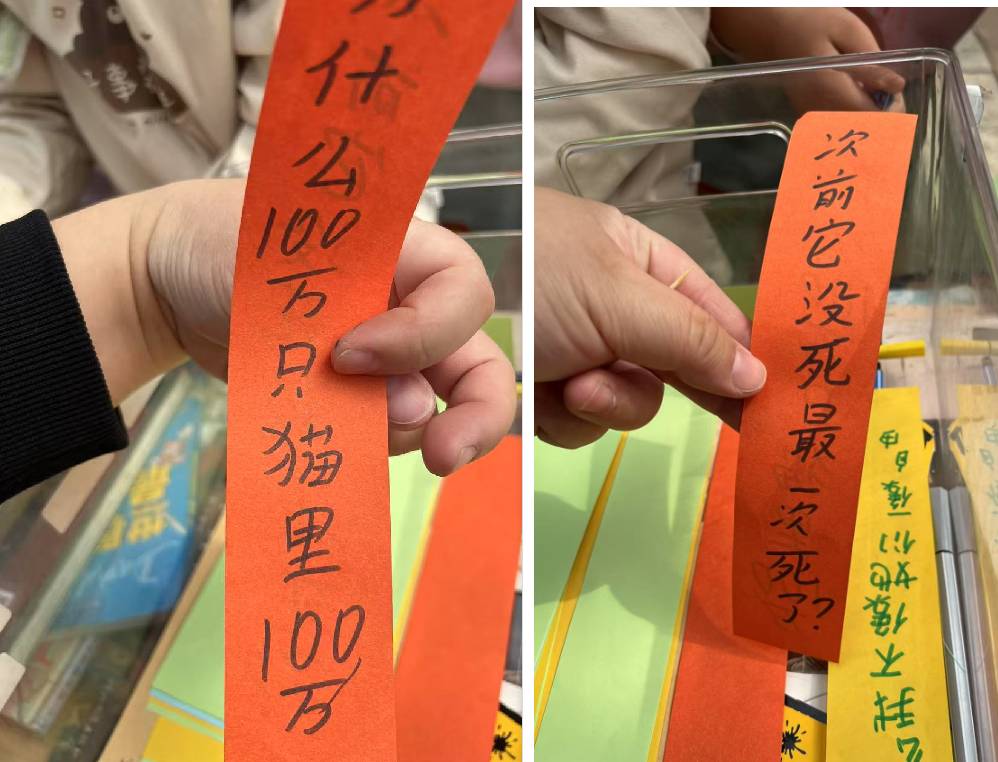 什么100万只猫里100万
次前它没死最一次死了?
么我不像她们一像自由